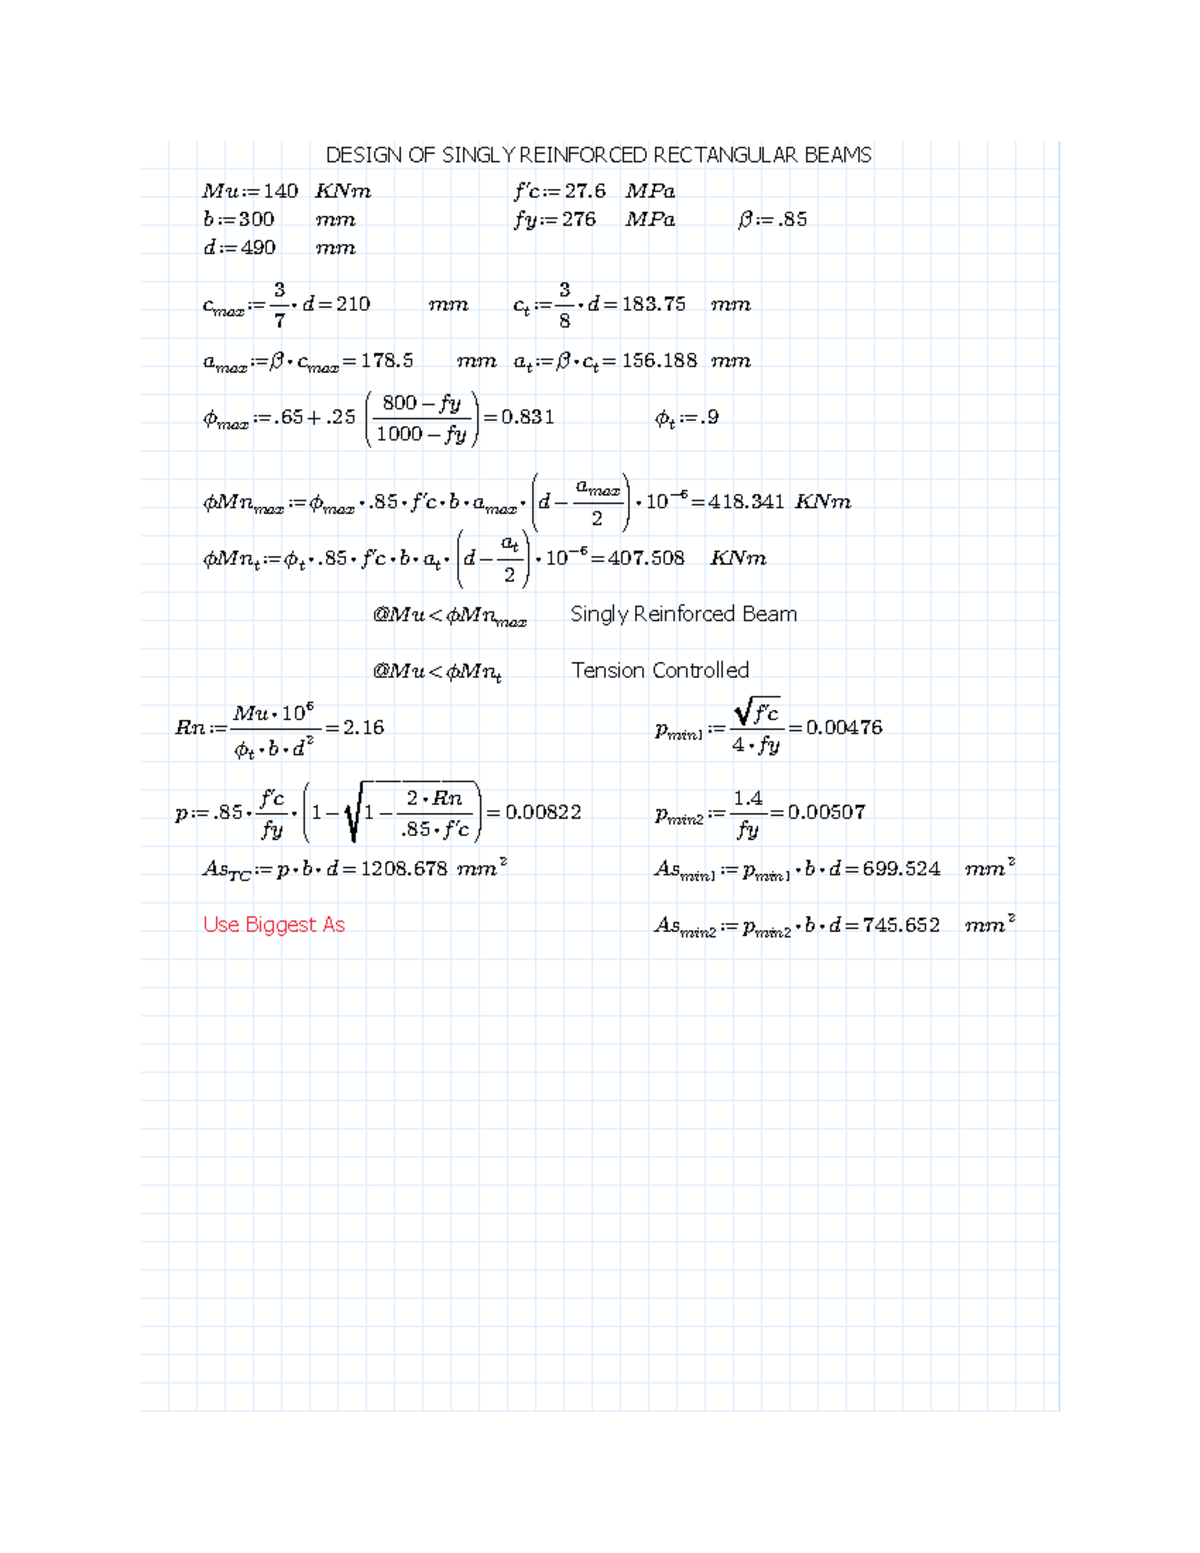 DESIGN OF SINGLY REINFORCED RECTANGULAR BEAMS
Mu:=140 KNm f'c:=27.6 MPa
b:=300 mm fy:=276 MPa β:=.85
d:=490 mm
c_max:=3/7·d=210 mm c_t:=3/8·d=183.75 mm
a_max:=β·c_max=178.5 mm a_t:=β·c_t=156.188 mm
ϕ_max:=.65+.25 ((800−fy)/(1000−fy))=0.831 ϕ_t:=.9
ϕMn_max:=ϕ_max·.85·f'c·b·a_max·(d−a_max/2)·10^−6=418.341 KNm
ϕMn_t:=ϕ_t·.85·f'c·b·a_t·(d−a_t/2)·10^−6=407.508 KNm
@Mu<ϕMn_max Singly Reinforced Beam
@Mu<ϕMn_t Tension Controlled
Rn:=(Mu·10^6)/(ϕ_t·b·d^2)=2.16 p_min1:=√f'c/(4·fy)=0.00476
p:=.85·f'c/fy·(1−√(1−(2·Rn)/(.85·f'c)))=0.00822 p_min2:=1.4/fy=0.00507
As_TC:=p·b·d=1208.678 mm^2 As_min1:=p_min1·b·d=699.524 mm^2
Use Biggest As As_min2:=p_min2·b·d=745.652 mm^2